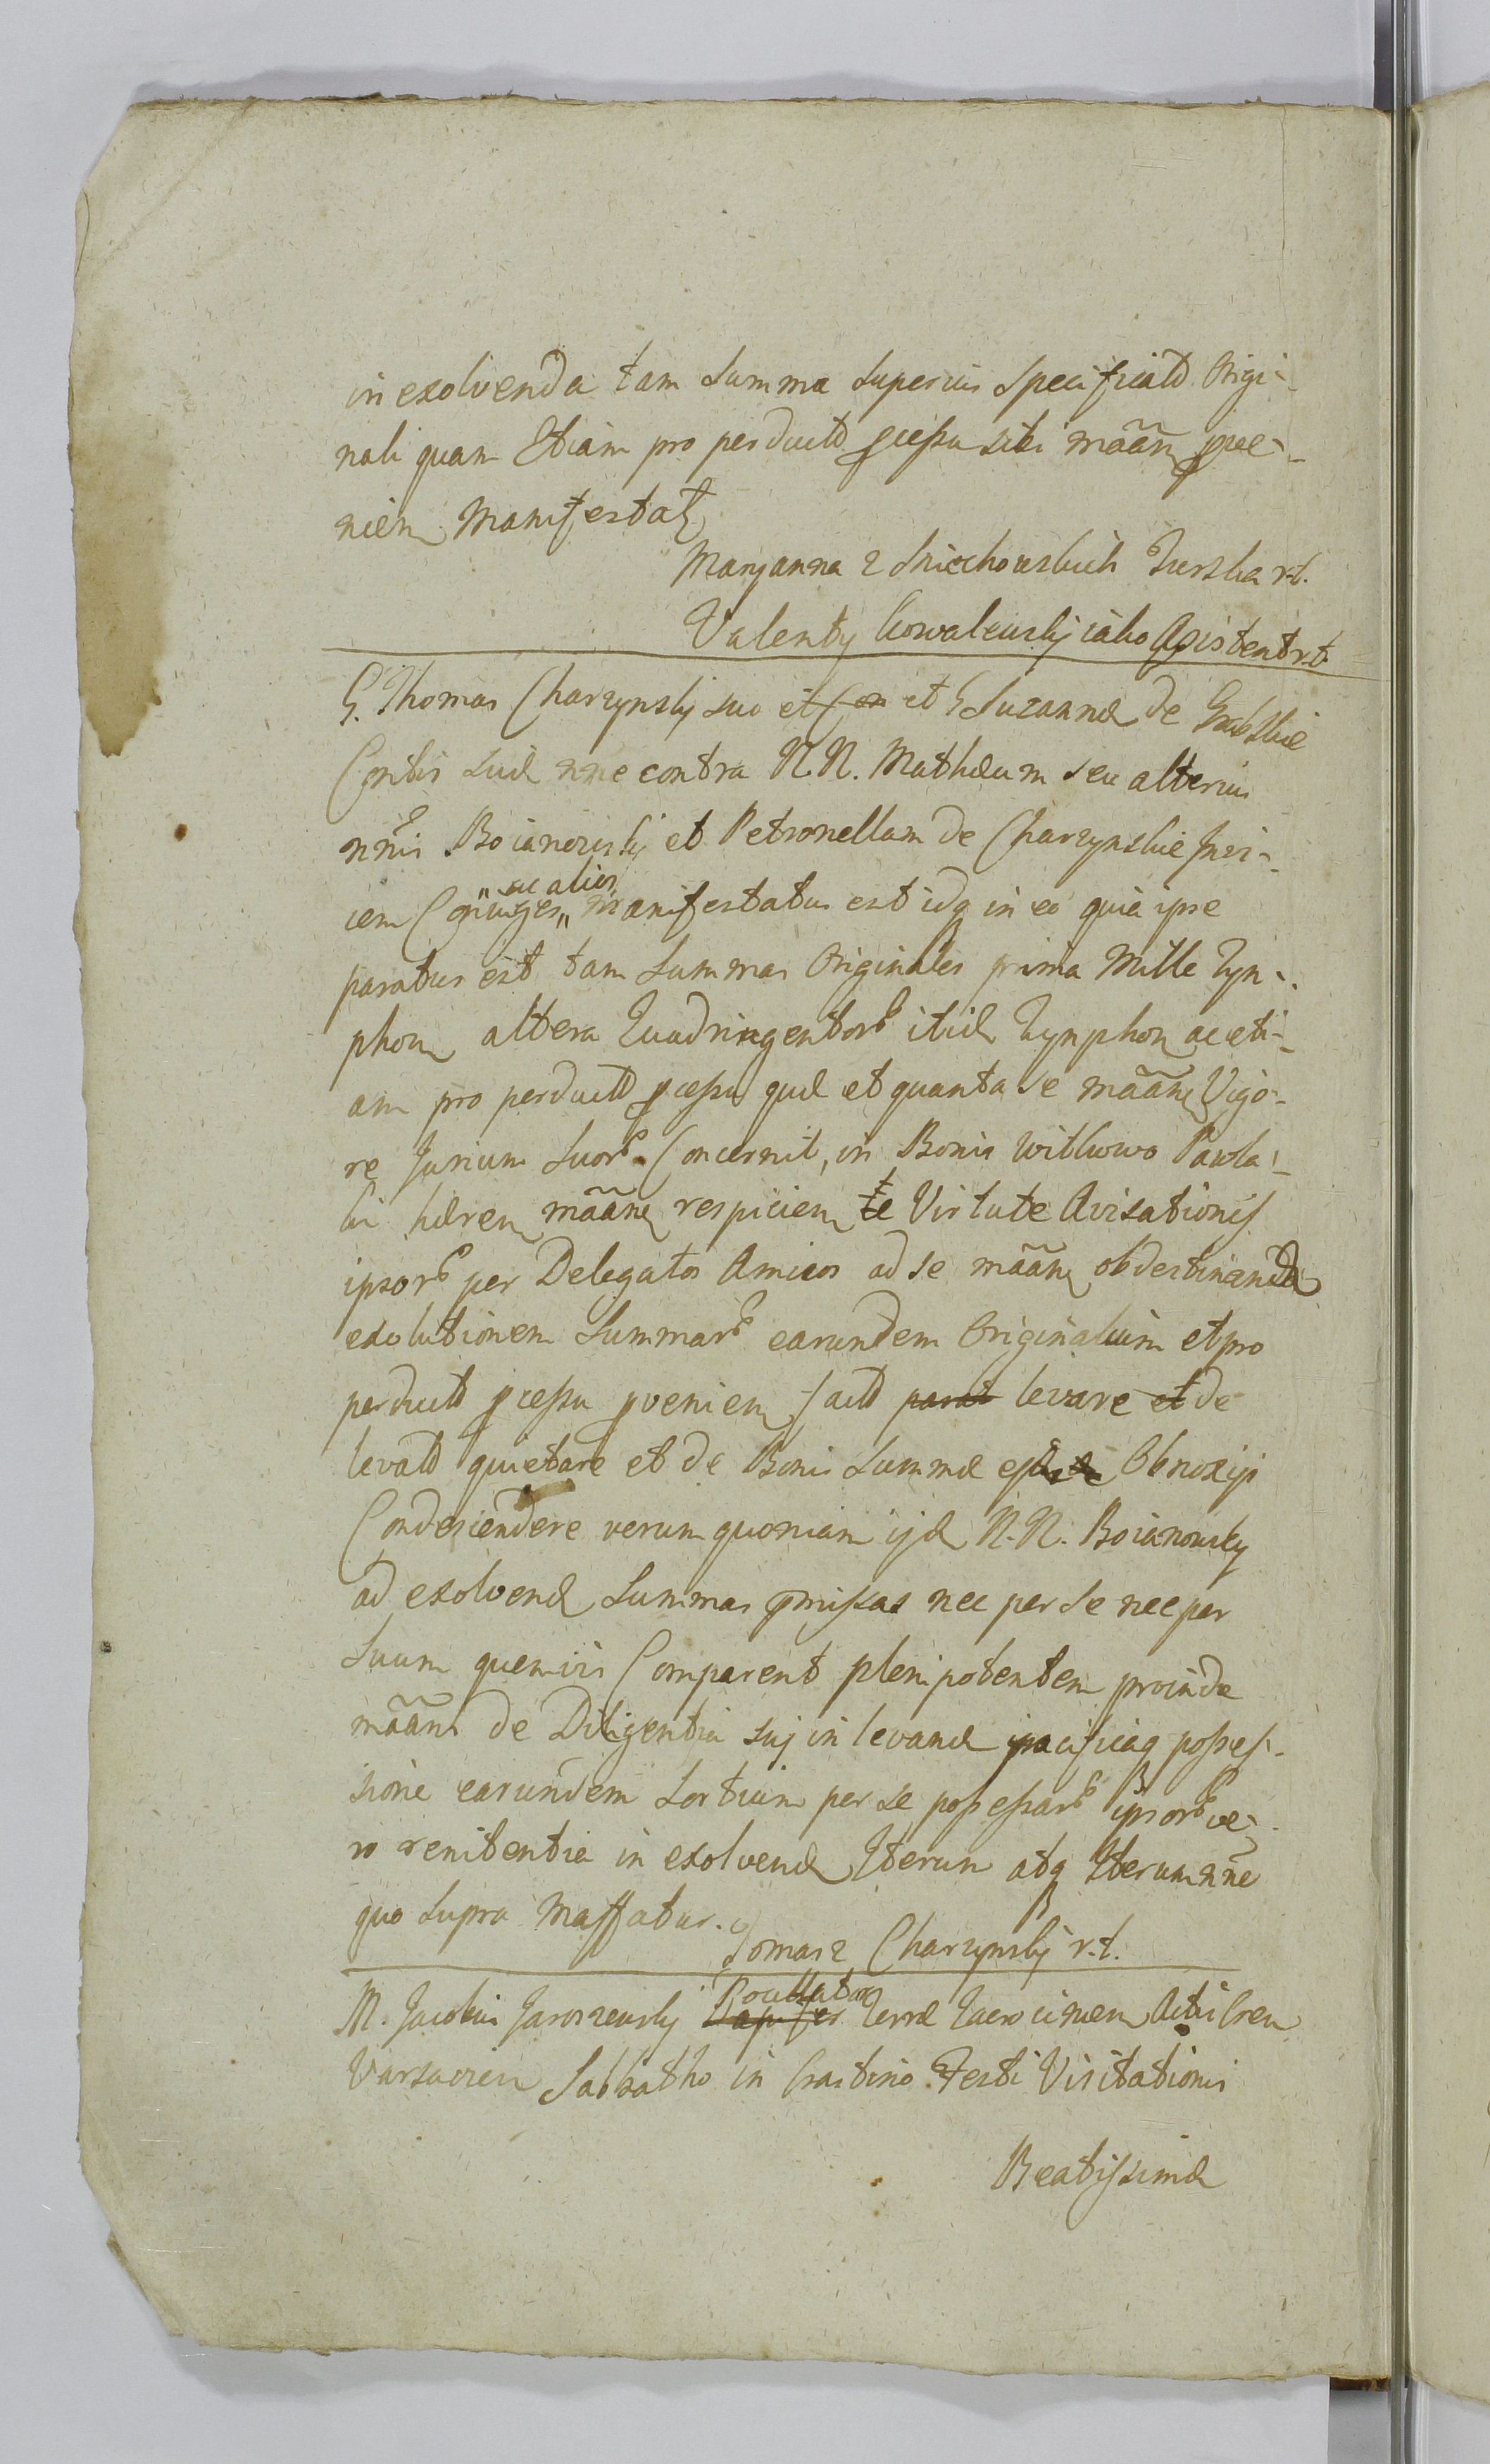 in exolvenda tam Summa Superius Specificatd Origi-
nali quam Etiam pro perductd pcessu sibi mããn pve-
nien Manifestat
Maryanna z Sniechowskich Turska r.t.
Valenty Kowalewskij iako Asistent r.t.
G. Thomas Charzynskij suo et et G Suzannæ de
Contis Suæ nne contra N.N. Mathæum seu alterius
nnis Boianowskij et Petronellam de Charzynskie Invi-
cem Cõniuges „ac alios„ Manifestatus est idq in eo quia ipse
paratus est tam Summas Originales prima Mille Tyn-
phon altera Quadringentor itid Tynphon ac eti-
am pro perductd pcessu quæ et quanta se mããn Vigo-
re Jurium Suor Concernit, in Bonis Witkowo Pawla-
ki hæren mããn respicien te Virtute Avisationis
ipsor per Delegatos Amicos ad se mããn obdestinanda
exolutionem Summar earundem Originalium et pro
perductd pcessu pvenien factd parat levare et de
levatd quietare et de Bonis Summæ Obnoxijs
Condescendere verum quoniam ijd N.N. Boianowsky
ad exolvend Summas pmissas nec per se nec per
Suum quemvis Comparent plenipotentem proinde
mããns de Diligentia suj in levand pacificaq posses-
sione earundem Sortium per se possessar ipsor ve-
ro renitentia in exolvend Iterum atq Iterum nne
quo Supra Maffatur.
Tomasz Charzynskij r.t.
M. Jacobus Jaroszewskij Pocillator Dapifer Terræ Actus Cren
Varsavien Sabbatho in Crastino Festi Visitationis
Beatissimæ